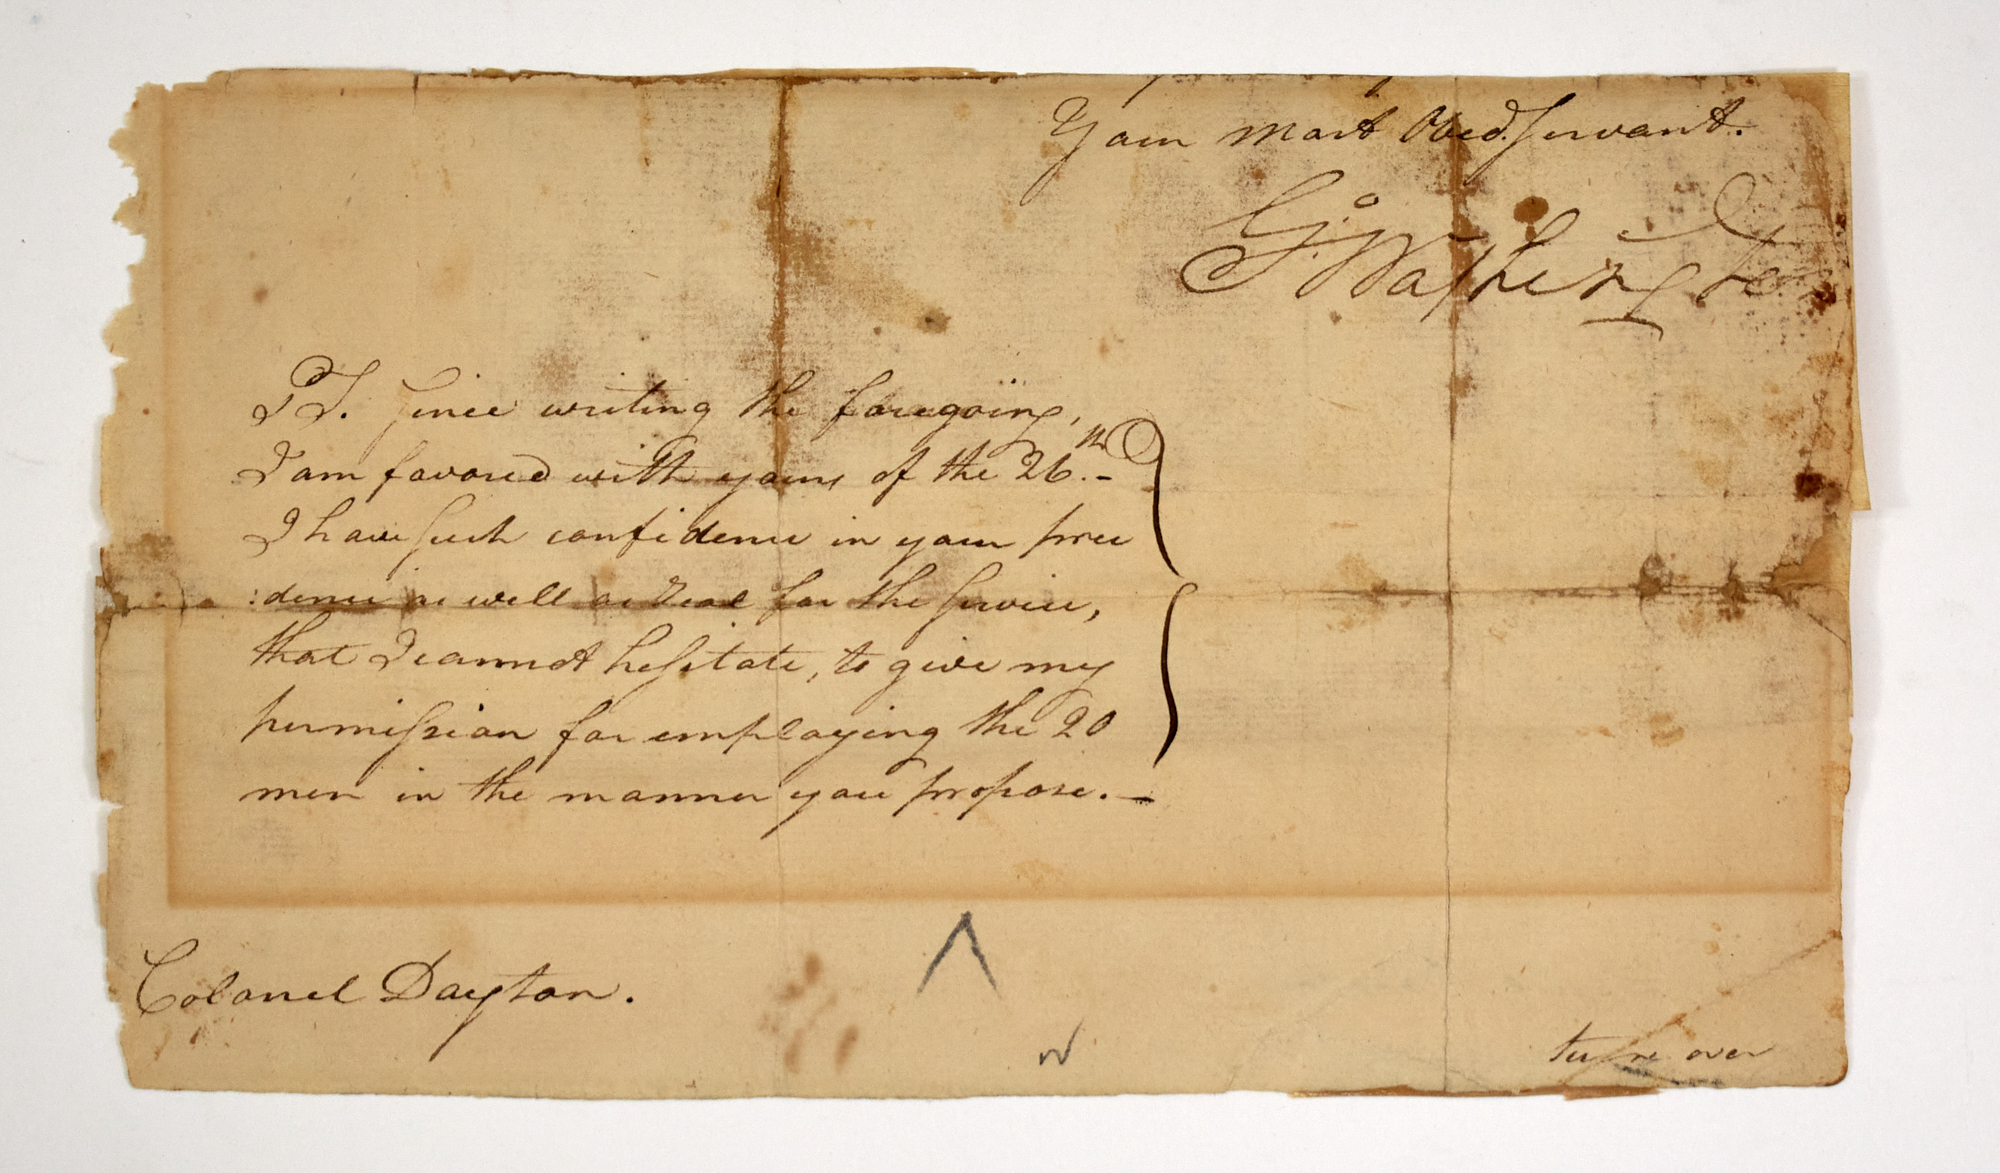 Your most Obed. Servant.
Go: Washington
P.S. Since writing the foregoing,
I am favored with yours of the 26.th –
I have such confidence in your pru
:dence as well as zeal for the service,
that I cannot hesitate, to give my
permission for employing the 20
men in the manner you propose. –
Colonel Dayton.
turn over